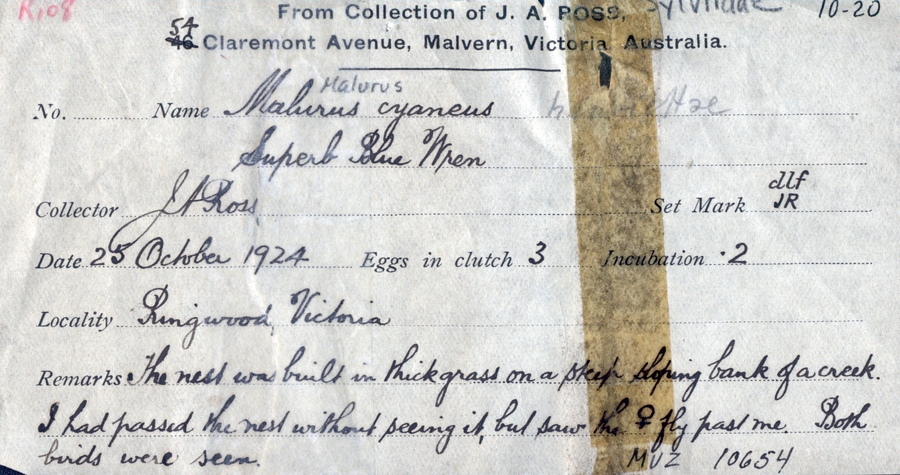 R108
Sylviidae 10-20
From Collection of J. A. ROSS,
54
46 Claremont Avenue, Malvern, Victoria Australia.
Malurus
No. Name Malurus cyaneus
Superb Blue Wren
dlf
Collector J A Ross Set Mark JR
Date 25 October 1924 Eggs in clutch 3 Incubation ·2
Locality Ringwood, Victoria
Remarks The nest was built in thick grass on a steep sloping bank of a creek.
I had passed the nest without seeing it, but saw the ♀ fly past me. Both
birds were seen. MVZ 10654